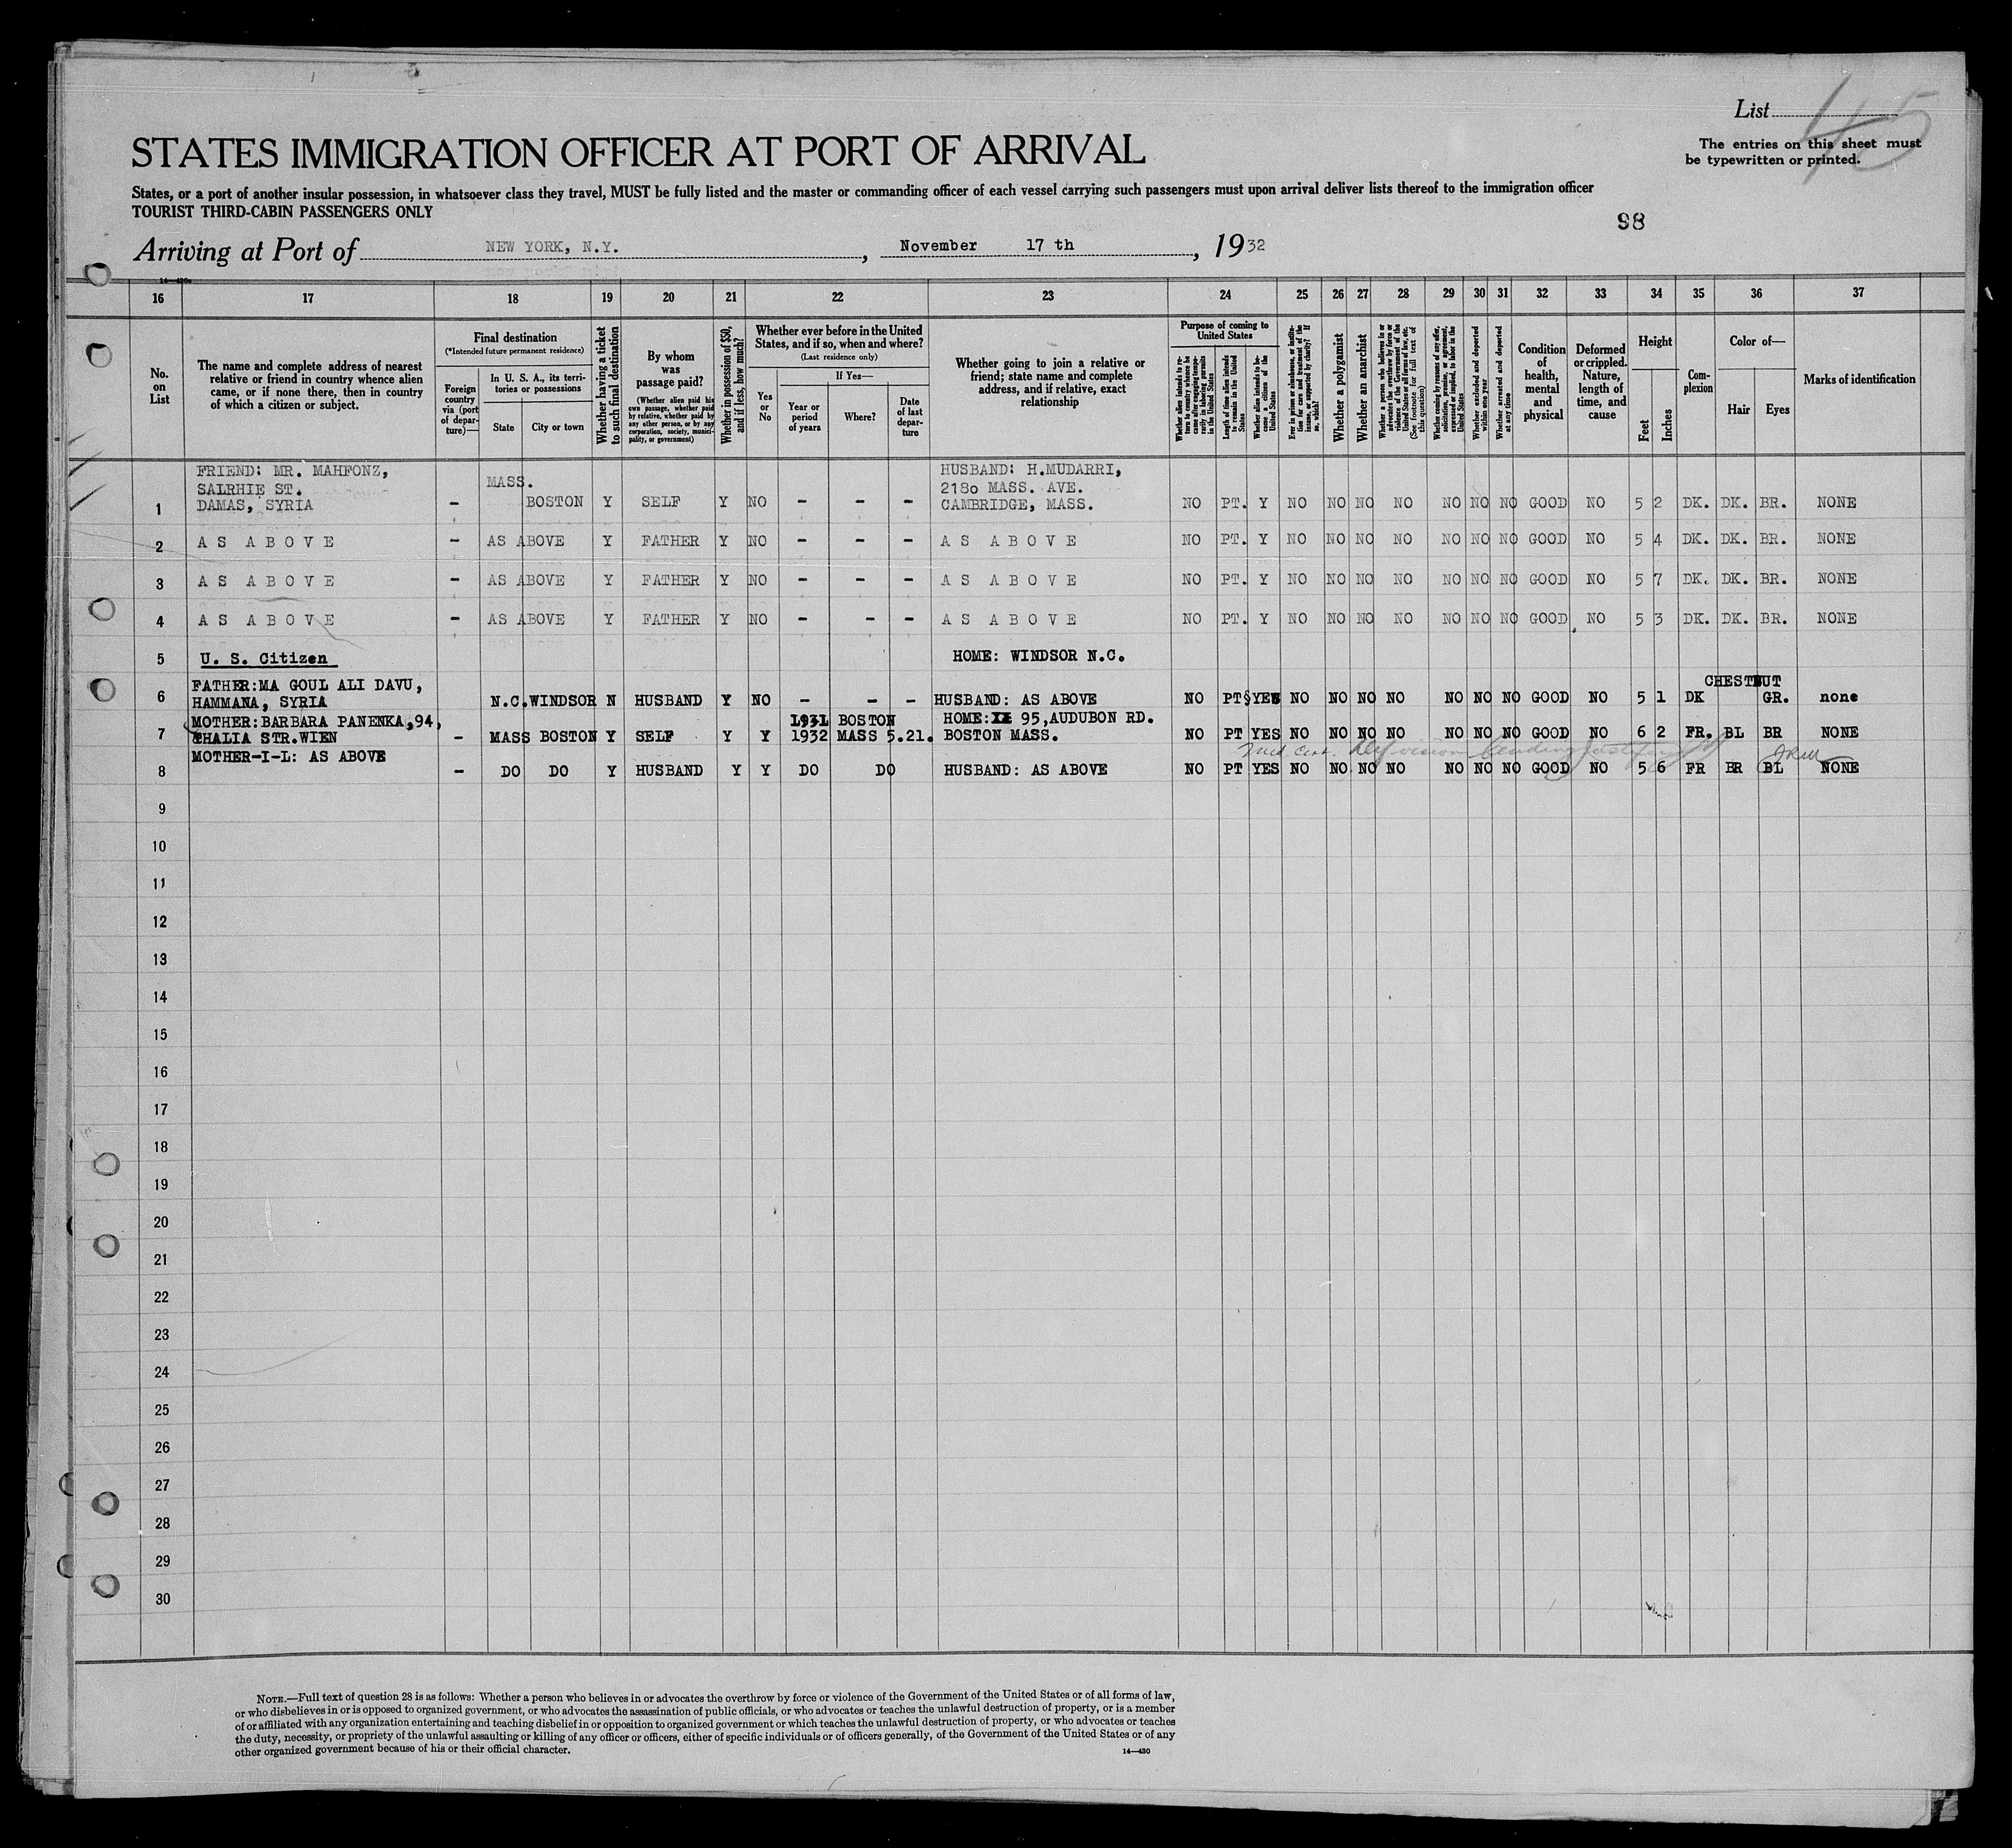 List 45
The entries on this sheet must
be typewritten or printed.
STATES IMMIGRATION OFFICER AT PORT OF ARRIVAL
States, or a port of another insular possession, in whatsoever class they travel, MUST be fully listed and the master or commanding officer of each vessel carrying such passengers must upon arrival deliver lists thereof to the immigration officer
TOURIST THIRD-CABIN PASSENGERS ONLY
98
Arriving at Port of NEW YORK, N.Y. , November 17 th , 1932
16 17 18 19 20 21 22 23 24 25 26 27 28 29 30 31 32 33 34 35 36 37
No. on List
The name and complete address of nearest
relative or friend in country whence alien
came, or if none there, then in country
of which a citizen or subject.
Final destination
(*Intended future permanent residence)
Foreign country via (port of departure)—
In U. S. A., its territories or possessions
State
City or town
Whether having a ticket to such final destination
By whom was passage paid?
(Whether alien paid his own passage, whether paid by relative, whether paid by any other person, or by any corporation, society, municipality, or government)
Whether in possession of $50, and if less, how much?
Whether ever before in the United
States, and if so, when and where?
(Last residence only)
Yes or No
If Yes—
Year or period of years
Where?
Date of last departure
Whether going to join a relative or
friend; state name and complete
address, and if relative, exact
relationship
Purpose of coming to United States
Whether alien intends to return to country whence he came after engaging temporarily in laboring pursuits in the United States
Length of time alien intends to remain in the United States
Whether alien intends to become a citizen of the United States
Ever in prison or almshouse, or institution for care and treatment of the insane, or supported by charity? If so, which?
Whether a polygamist
Whether an anarchist
Whether a person who believes in or advocates the overthrow by force or violence of the Government of the United States or all forms of law, etc. (See footnote for full text of this question)
Whether coming by reasons of any offer, solicitation, promise, or agreement, expressed or implied, to labor in the United States
Whether excluded and deported within one year
Whether arrested and deported at any time
Condition of health, mental and physical
Deformed or crippled. Nature, length of time, and cause
Height
Feet
Inches
Complexion
Color of—
Hair
Eyes
Marks of identification
FRIEND: MR. MAHFONZ, HUSBAND: H.MUDARRI,
SALRHIE ST. MASS. 2180 MASS. AVE.
1 DAMAS, SYRIA - BOSTON Y SELF Y NO - - - CAMBRIDGE, MASS. NO PT. Y NO NO NO NO NO NO NO GOOD NO 5 2 DK. DK. BR. NONE
2 A S A B O V E - AS ABOVE Y FATHER Y NO - - - A S A B O V E NO PT. Y NO NO NO NO NO NO NO GOOD NO 5 4 DK. DK. BR. NONE
3 A S A B O V E - AS ABOVE Y FATHER Y NO - - - A S A B O V E NO PT. Y NO NO NO NO NO NO NO GOOD NO 5 7 DK. DK. BR. NONE
4 A S A B O V E - AS ABOVE Y FATHER Y NO - - - A S A B O V E NO PT. Y NO NO NO NO NO NO NO GOOD NO 5 3 DK. DK. BR. NONE
5 U. S. Citizen HOME: WINDSOR N.C.
FATHER:MA GOUL ALI DAVU, CHESTNUT
6 HAMMANA, SYRIA N.C.WINDSOR N HUSBAND Y NO - - - HUSBAND: AS ABOVE NO PT YES NO NO NO NO NO NO NO GOOD NO 5 1 DK GR. none
MOTHER:BARBARA PANENKA,94, 1931 BOSTON HOME: 95,AUDUBON RD.
7 THALIA STR.WIEN - MASS BOSTON Y SELF Y Y 1932 MASS 5.21. BOSTON MASS. NO PT YES NO NO NO NO NO NO NO GOOD NO 6 2 FR. BL BR NONE
MOTHER-I-L: AS ABOVE
8 - DO DO Y HUSBAND Y Y DO DO HUSBAND: AS ABOVE NO PT YES NO NO NO NO NO NO NO GOOD NO 5 6 FR BR BL NONE
9
10
11
12
13
14
15
16
17
18
19
20
21
22
23
24
25
26
27
28
29
30
NOTE.—Full text of question 28 is as follows: Whether a person who believes in or advocates the overthrow by force or violence of the Government of the United States or of all forms of law,
or who disbelieves in or is opposed to organized government, or who advocates the assassination of public officials, or who advocates or teaches the unlawful destruction of property, or is a member
of or affiliated with any organization entertaining and teaching disbelief in or opposition to organized government or which teaches the unlawful destruction of property, or who advocates or teaches
the duty, necessity, or propriety of the unlawful assaulting or killing of any officer or officers, either of specific individuals or of officers generally, of the Government of the United States or of any
other organized government because of his or their official character.
14—430